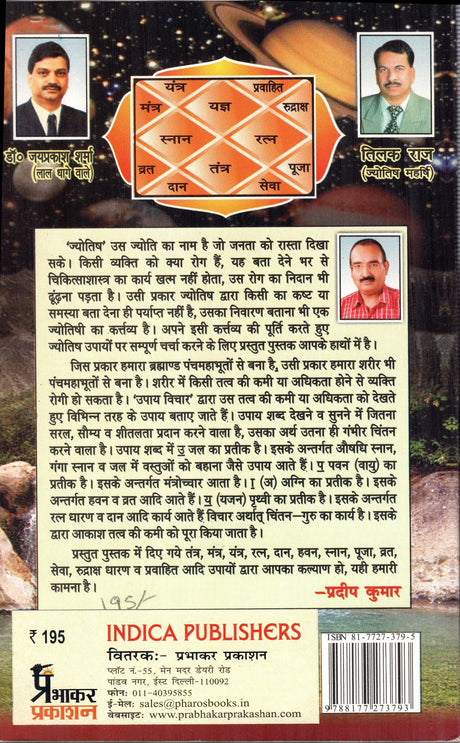 यंत्र
प्रवाहित
मंत्र
यज्ञ
रुद्राक्ष
स्नान
रत्न
व्रत
तंत्र
पूजा
दान
सेवा
डॉ० जयप्रकाश शर्मा
(लाल धागे वाले)
तिलक राज
(ज्योतिष महर्षि)
'ज्योतिष' उस ज्योति का नाम है जो जनता को रास्ता दिखा
सके। किसी व्यक्ति को क्या रोग हैं, यह बता देने भर से
चिकित्साशास्त्र का कार्य खत्म नहीं होता, उस रोग का निदान भी
ढूंढ़ना पड़ता है। उसी प्रकार ज्योतिष द्वारा किसी का कष्ट या
समस्या बता देना ही पर्याप्त नहीं है, उसका निवारण बताना भी एक
ज्योतिषी का कर्त्तव्य है। अपने इसी कर्त्तव्य की पूर्ति करते हुए
ज्योतिष उपायों पर सम्पूर्ण चर्चा करने के लिए प्रस्तुत पुस्तक आपके हाथों में है।
जिस प्रकार हमारा ब्रह्माण्ड पंचमहाभूतों से बना है, उसी प्रकार हमारा शरीर भी
पंचमहाभूतों से बना है। शरीर में किसी तत्व की कमी या अधिकता होने से व्यक्ति
रोगी हो सकता है। 'उपाय विचार' द्वारा उस तत्व की कमी या अधिकता को देखते
हुए विभिन्न तरह के उपाय बताए जाते हैं। उपाय शब्द देखने व सुनने में जितना
सरल, सौम्य व शीतलता प्रदान करने वाला है, उसका अर्थ उतना ही गंभीर चिंतन
करने वाला है। उपाय शब्द में उ जल का प्रतीक है। इसके अन्तर्गत औषधि स्नान,
गंगा स्नान व जल में वस्तुओं को बहाना जैसे उपाय आते हैं। प पवन (वायु) का
प्रतीक है। इसके अन्तर्गत मंत्रोच्चार आता है। ा (अ) अग्नि का प्रतीक है। इसके
अन्तर्गत हवन व व्रत आदि आते हैं। य (यजन) पृथ्वी का प्रतीक है। इसके अन्तर्गत
रत्न धारण व दान आदि कार्य आते हैं विचार अर्थात् चिंतन–गुरु का कार्य है। इसके
द्वारा आकाश तत्व की कमी को पूरा किया जाता है।
प्रस्तुत पुस्तक में दिए गये तंत्र, मंत्र, यंत्र, रत्न, दान, हवन, स्नान, पूजा, व्रत,
सेवा, रुद्राक्ष धारण व प्रवाहित आदि उपायों द्वारा आपका कल्याण हो, यही हमारी
कामना है।
–प्रदीप कुमार
195/
₹ 195
प्रभाकर
प्रकाशन
INDICA PUBLISHERS
वितरक:- प्रभाकर प्रकाशन
प्लॉट नं.-55, मेन मदर डेयरी रोड
पांडव नगर, ईस्ट दिल्ली-110092
फोन: 011-40395855
ई-मेल: sales@pharosbooks.in
वेबसाइट: www.prabhakarprakashan.com
ISBN 81-7727-379-5
9788177273793